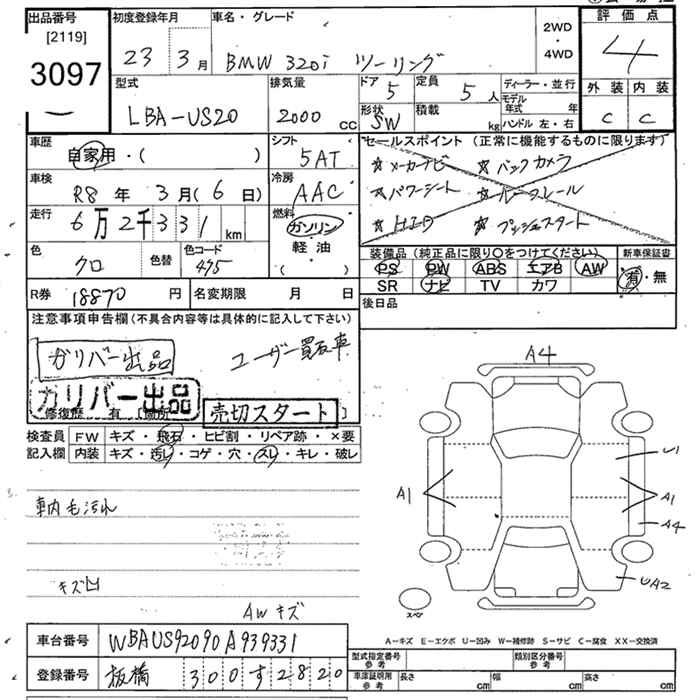 出品番号
[2119]
3097
初度登録年月
23年3月
車名・グレード
BMW 320i ツーリング
2WD
・
4WD
評価点
4
外装 内装
C C
型式
LBA-US20
排気量
2000 CC
ドア
5
定員
5人
ディーラー・並行
モデル年式 年
形状
SW
積載
kg
ハンドル 左・右
車歴
自家用・( )
シフト
5AT
セールスポイント (正常に機能するものに限ります)
☆メーカーナビ ☆バックカメラ
☆パワーシート ☆ルーフレール
☆HID ☆プッシュスタート
車検
R8年3月(6日)
冷房
AAC
走行
6万2千331km
燃料
ガソリン
軽油
・( )
色
クロ
色替
色コード
475
装備品 (純正品に限り○をつけてください)
PS PW ABS エアB AW
SR ナビ TV カワ
新車保証書
有・無
R券
18870円
名変期限 月 日
後日品
注意事項申告欄(不具合内容等は具体的に記入して下さい)
ガリバー出品
ユーザー買取車
ガリバー出品
修復歴 有 [箇所
売切スタート
検査員記入欄
FW キズ・飛石・ヒビ割・リペア跡・×要
内装 キズ・汚レ・コゲ・穴・スレ・キレ・破レ
車内毛汚れ
キズ凹
AWキズ
A4
U1
A1
A1
A4
UA2
スペア
A-キズ E-エクボ U-凹み W-補修跡 S-サビ C-腐食 XX-交換済
車台番号
WBAUS92090A939331
登録番号
板橋 300す2820
型式指定番号 参考
類別区分番号 参考
車庫証明用 参考
長さ cm
幅 cm
高さ cm